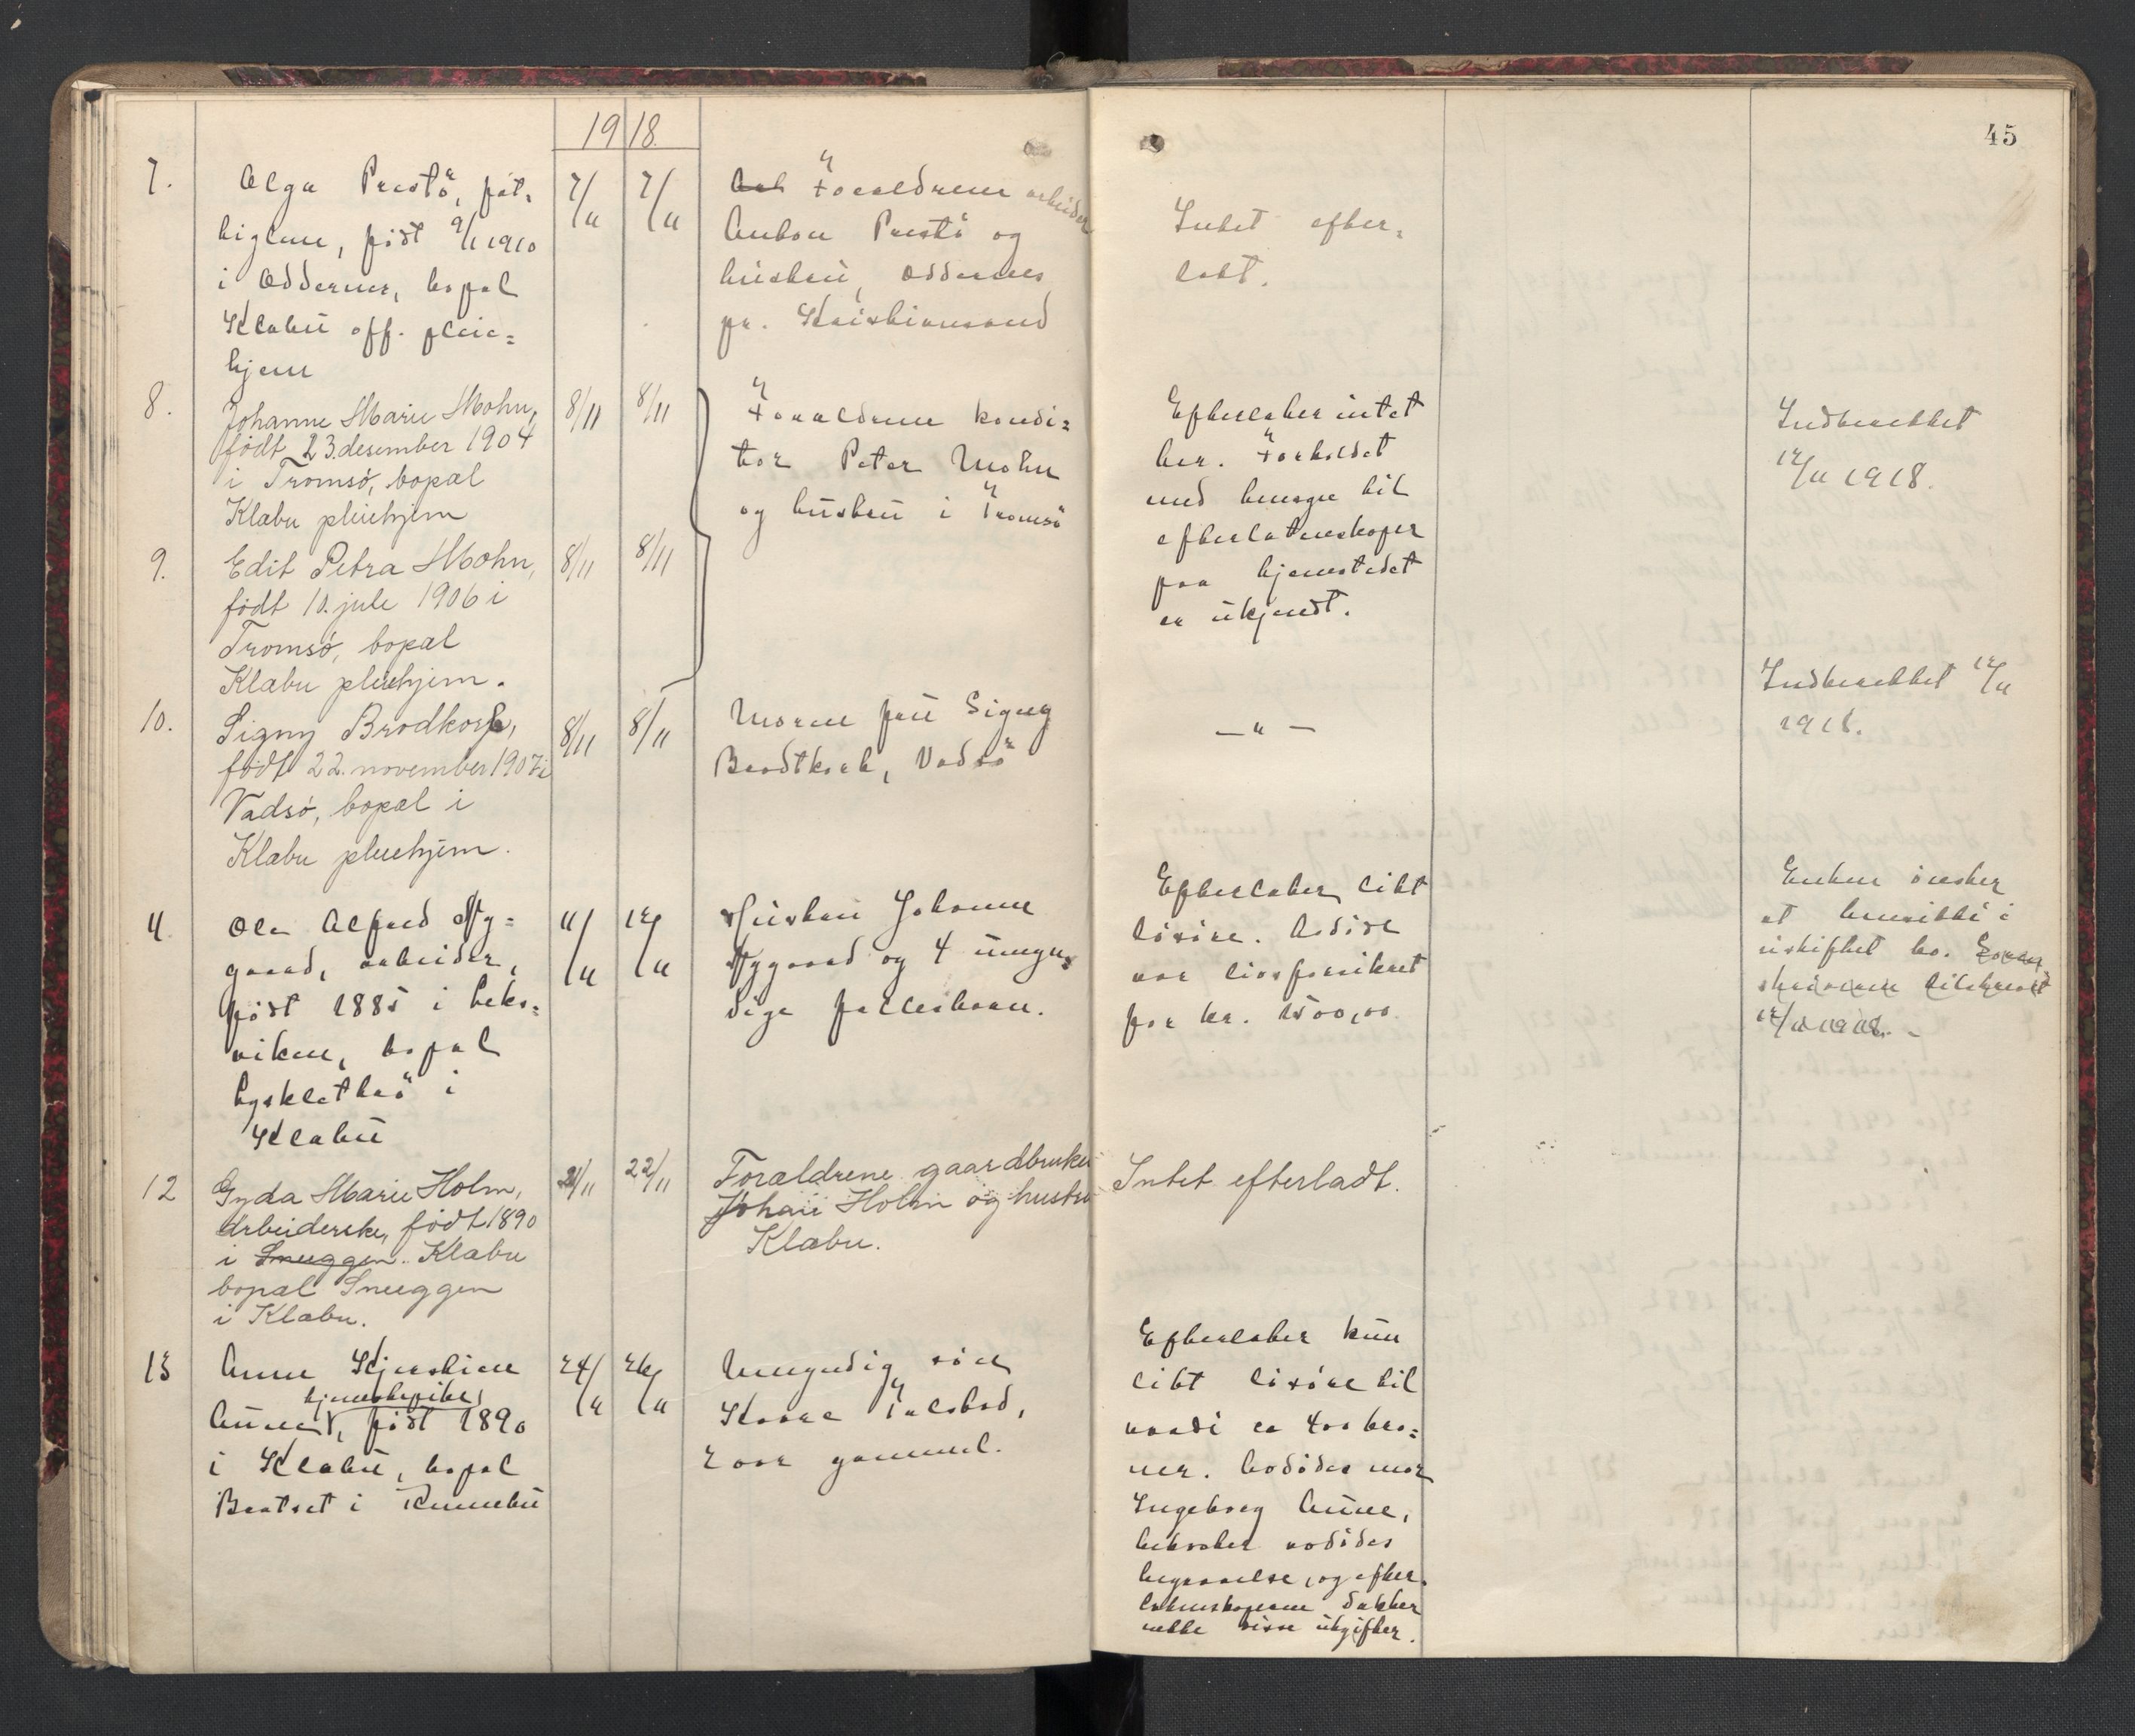 45
1918.
7.
Olga Prestö, fat-
tiglem, födt 9/1 1910
i Oddernes, bopæl
Klæbu off. pleie-
hjem
7/11
7/11
Forældrene arbeider
Anton Prestö og
hustru, Oddernes
pr. Kristianssand
Intet efter-
latt.
8.
Johanne Marie Mohn,
født 23. desember 1904
i Tromsø, bopæl
Klæbu pleiehjem
8/11
8/11
Forældrene kondi-
tor Peter Mohn
og hustru i Tromsö
Efterlater intet
her. Forholdet
med hensyn til
efterlatenskaper
paa hjemstedet
er ukjendt.
Indberettet
12/11 1918.
9.
Edit Petra Mohn,
født 10. jule 1906 i
Tromsø, bopæl
Klæbu pleiehjem.
8/11
8/11
10.
Signy Brodkorb,
født 22. november 1907 i
Vadsø, bopæl i
Klæbu pleiehjem.
8/11
8/11
Moren fru Signy
Brodtkorb, Vadsö
— " —
Indberettet 12/11
1918.
11.
Ole Alfred Ny-
gaard, arbeider,
födt 1885 i Leks-
viken, bopæl
Lysklethaö i
Klæbu
11/11
12/11
Hustru Johanne
Nygaard og 4 umyn-
dige fællesbarn.
Efterlater litt
lösöre. Avdöde
var livsforsikret
for kr. 1500,00
Enken önsker
at hensitte i
uskiftet bo. Sorens-
skriveren tilskrevet
12/11 1918. -
12
Gyda Marie Holm,
arbeiderske, født 1890
i Snuggen. Klæbu
bopæl Snuggen
i Klæbu.
21/11
22/11
Forældrene gaardbruker
Johan Holm og hustru
Klæbu.
Intet efterladt.
13
Anne Kjerstine
hjemstepike,
Aunet, födt 1890
i Klæbu, bopæl
Bratset i Rennebu
24/11
26/11
Umyndig sön
Kaare Tulsbad,
2 aar gammel.
Efterlater kun
litt lösöre til
værdi ca 400 kro-
ner. Avdödes mor
Ingeborg Aune,
bekoster avdödes
begravelse, og efter-
latenskaperne dækker
neppe disse utgifter.